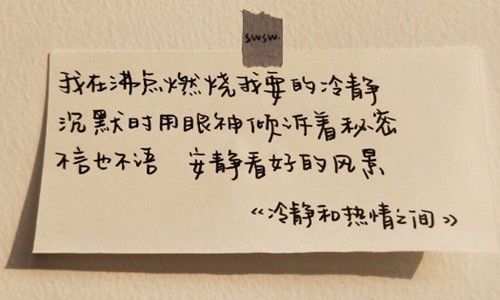 swsw.
我在沸点燃烧我要的冷静
沉默时用眼神倾诉着秘密
不言也不语 安静看好的风景
《冷静和热情之间》